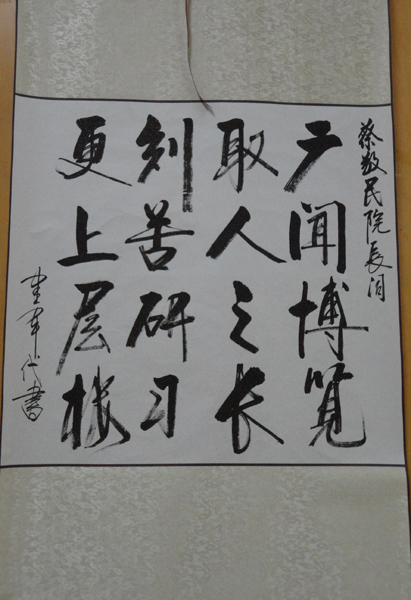 蔡敬民院長
广闻博览
取人之长
刻苦研习
更上层楼
书